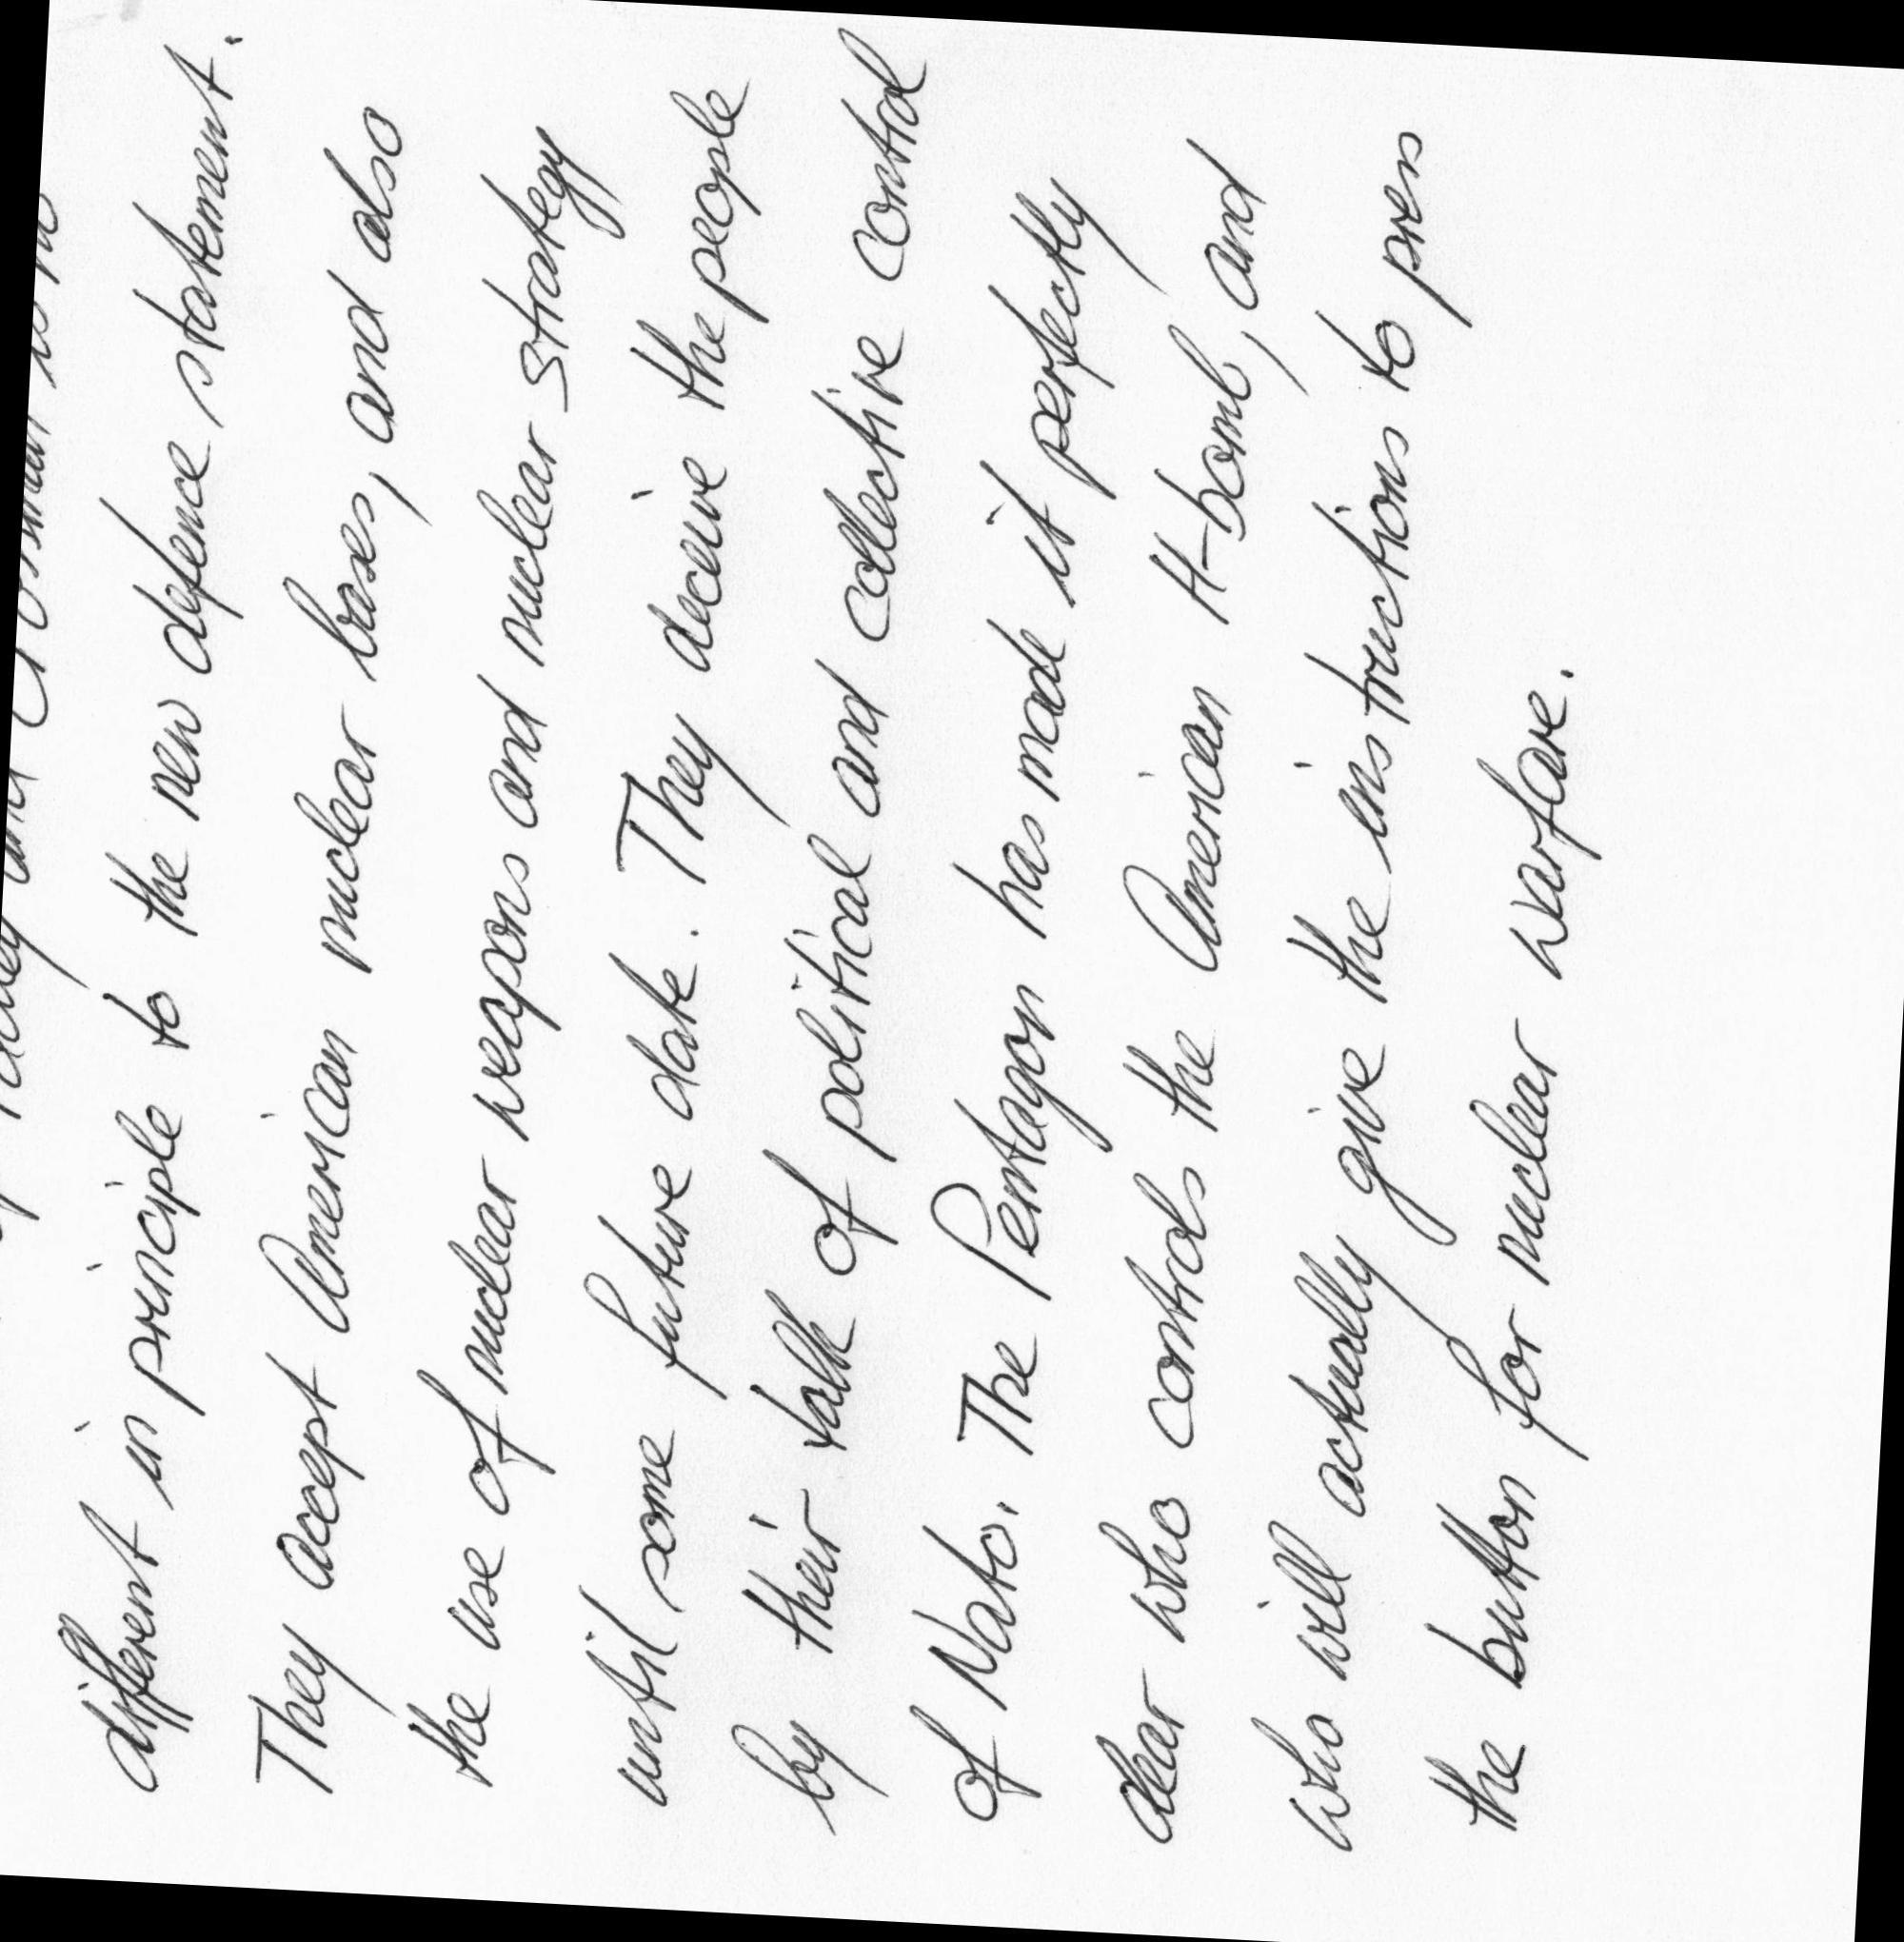 and Crossman is no
different in principle to the new defence statement.
They accept American nuclear bases, and also
the use of nuclear weapons and nuclear strategy
until some future date. They deceive the people
by their talk of political and collective control
of Nato. The Pentagon has made it perfectly
clear who controls the American H-bomb, and
who will actually give the instructions to press
the button for nuclear warfare.